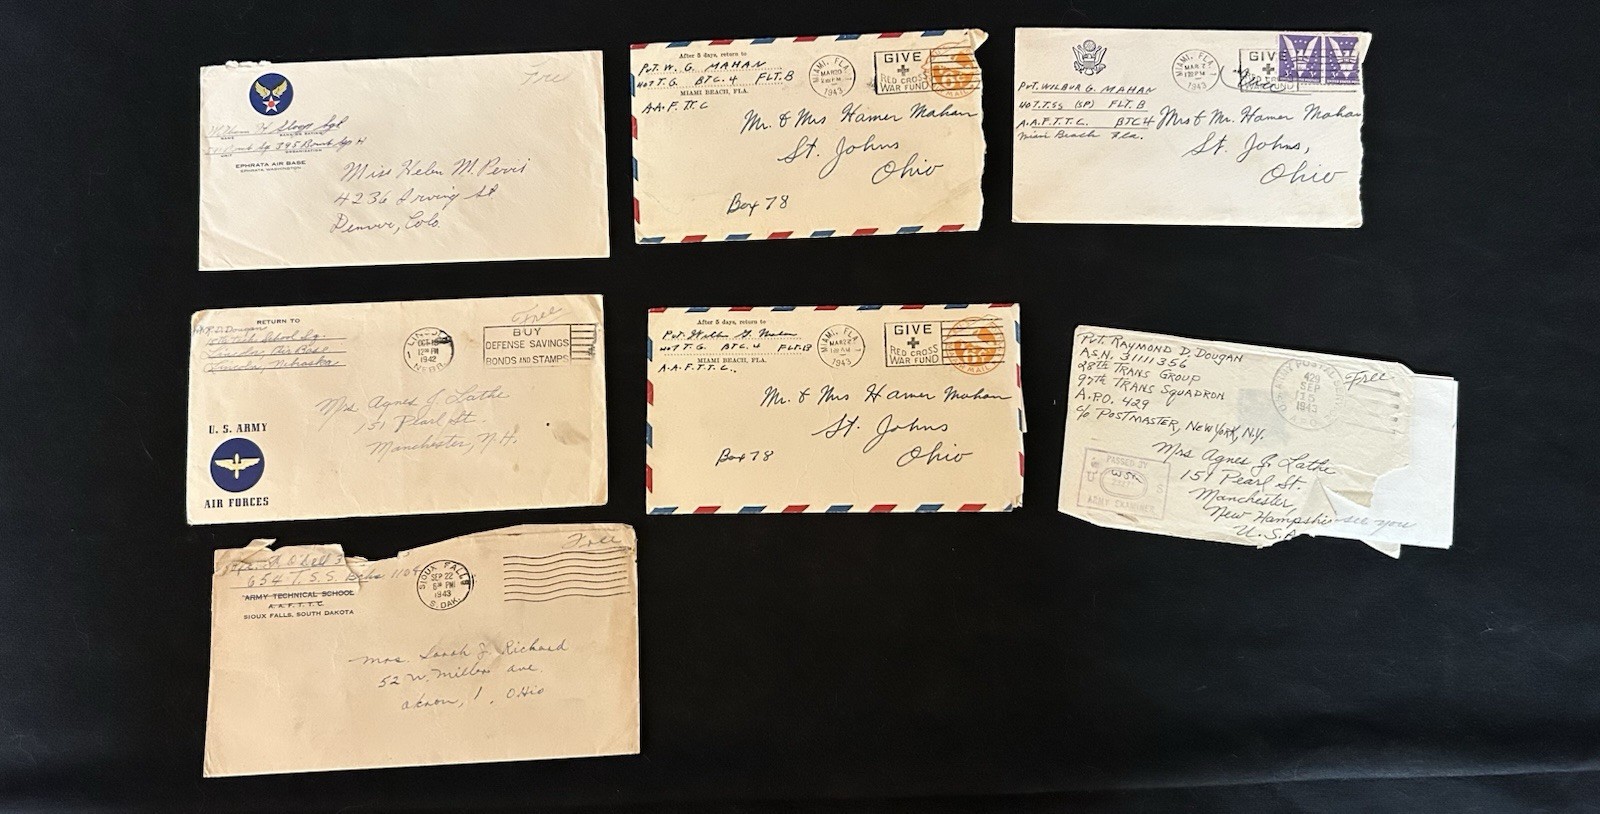 Free
Sgt
NAME
UNIT
ORGANIZATION
EPHRATA AIR BASE
EPHRATA, WASHINGTON
Miss Helen M. Pervis
4236 Irving St
Denver, Colo.
After 5 days, return to
Pvt. W. G. MAHAN
407 T.G. BTC. 4 FLT. B
MIAMI BEACH, FLA.
A.A.F.T.T.C
MIAMI, FLA.
MAR 20
1943
GIVE
RED CROSS
WAR FUND
6¢
Mr. & Mrs Hamer Mahan
St. Johns
Ohio
Box 78
Pvt. WILBUR G. MAHAN
407.T.SS (SP) FLT. B
A.A.F.T.T.C. BTC 4
Miami Beach Fla.
MIAMI, FLA.
MAR
1943
GIVE
RED CROSS
WAR FUND
Mrs & Mr. Hamer Mahan
St. Johns,
Ohio
RETURN TO
R. D. Dougan
School Sq.
Lincoln Air Base
Lincoln, Nebraska
LINCOLN
OCT 19
12 PM
1942
NEBR.
Free
BUY
DEFENSE SAVINGS
BONDS AND STAMPS
U. S. ARMY
AIR FORCES
Mrs Agnes J. Lathe
151 Pearl St.
Manchester, N.H.
After 5 days, return to
Pvt. Wilbur G. Mahan
407 T.G. BTC. 4 FLT. B
MIAMI BEACH, FLA.
A.A.F.T.T.C.
MIAMI, FLA.
MAR
1943
GIVE
RED CROSS
WAR FUND
6¢
AIR MAIL
Mr. & Mrs Hamer Mahan
St. Johns
Ohio
Box 78
Pvt. RAYMOND D. DOUGAN
A.S.N. 31111356
28th TRANS GROUP
97th TRANS SQUADRON
A.P.O. 429
c/o POSTMASTER, NEW YORK, N.Y.
U.S. ARMY POSTAL
429
SEP
15
1943
Free
PASSED BY
U S
ARMY EXAMINER
Mrs Agnes J. Lathe
151 Pearl St.
Manchester,
New Hampshire
U.S.A
see you
Free
654 T.S.S. Bks 1109
ARMY TECHNICAL SCHOOL
A. A. F. T. T. C.
SIOUX FALLS, SOUTH DAKOTA
SIOUX FALLS
SEP 22
6 PM
1943
S. DAK.
Mrs. Sarah J. Richard
52 W. Miller ave.
akron, 1, Ohio